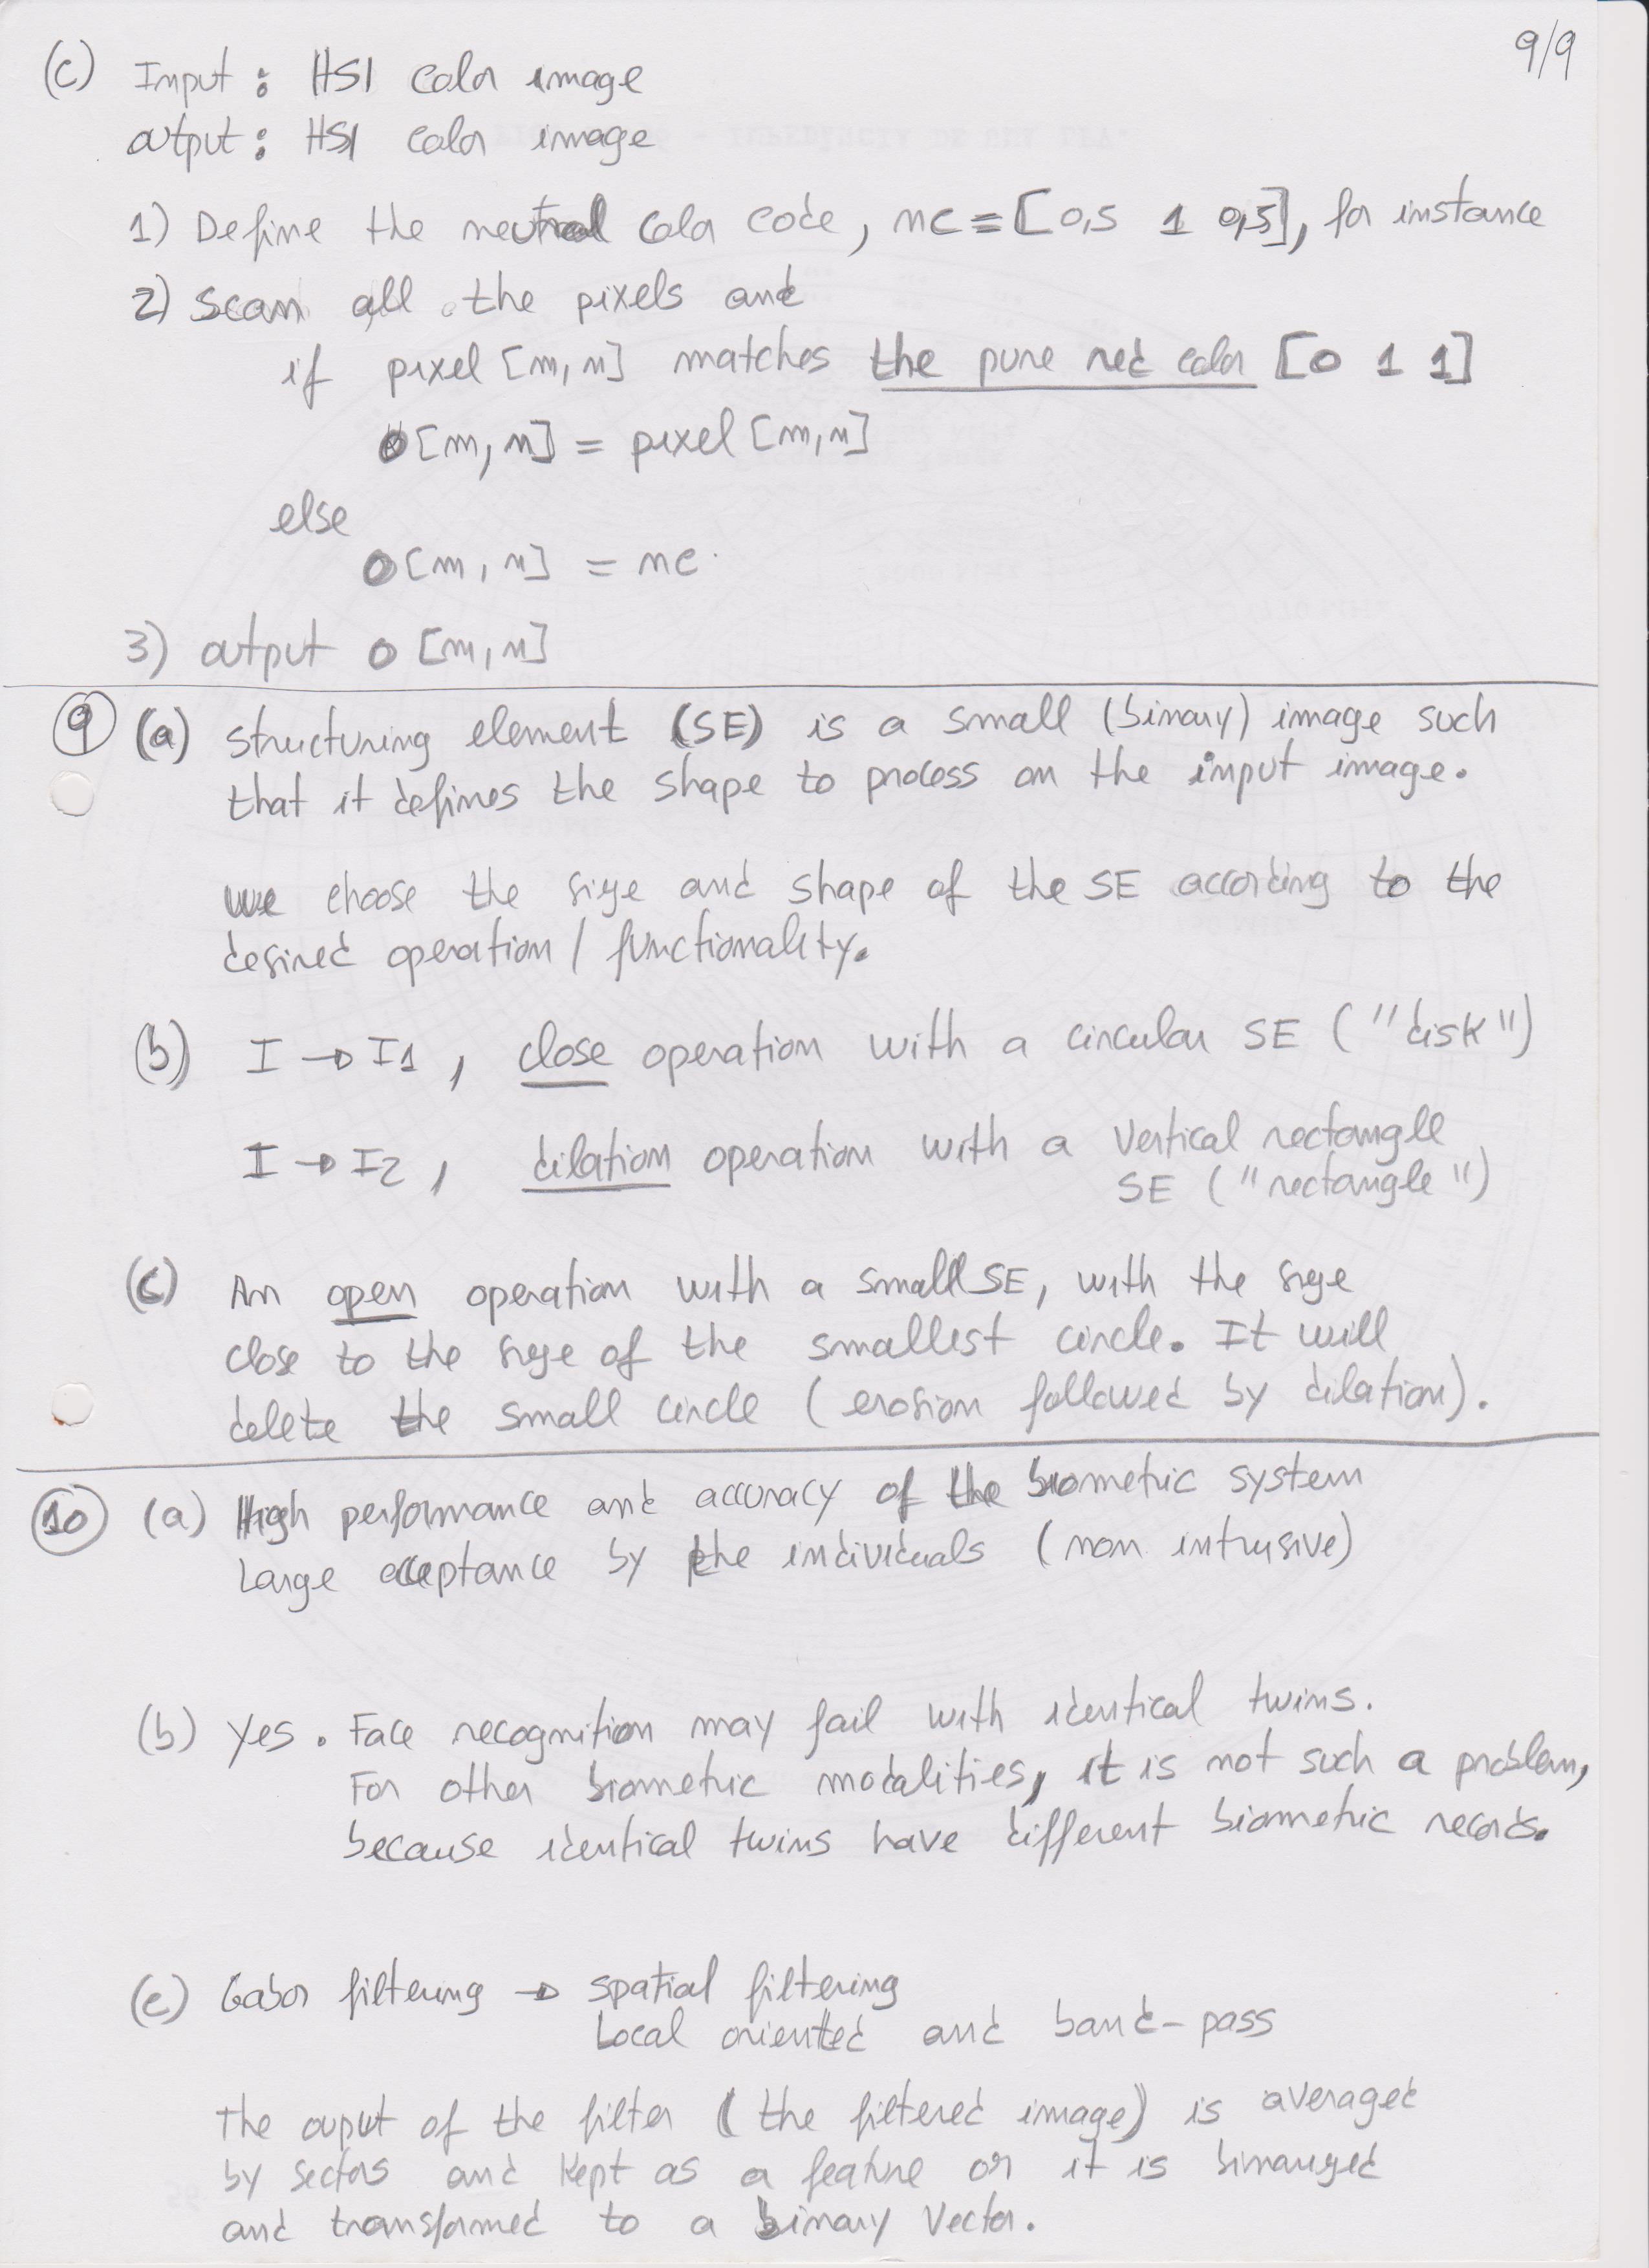 9/9
(c) Input : HSI color image
output : HSI color image
1) Define the neutral color code, nc = [0,5 1 0,5], for instance
2) Scan all the pixels and
if pixel [m,n] matches the pure red color [0 1 1]
O[m,n] = pixel [m,n]
else
O[m,n] = nc.
3) output O [m,n]
9 (a) Structuring element (SE) is a small (binary) image such
that it defines the shape to process on the input image.
we choose the size and shape of the SE according to the
desired operation / functionality.
(b) I → I1 , close operation with a circular SE ("disk")
I → I2 , dilation operation with a vertical rectangle
SE ("rectangle")
(c) An open operation with a small SE, with the size
close to the size of the smallest circle. It will
delete the small circle (erosion followed by dilation).
10 (a) High performance and accuracy of the biometric system
Large acceptance by the individuals (non intrusive)
(b) Yes. Face recognition may fail with identical twins.
For other biometric modalities, it is not such a problem,
because identical twins have different biometric records.
(c) Gabor filtering → spatial filtering
Local oriented and band-pass
The ouput of the filter (the filtered image) is averaged
by sectors and kept as a feature or it is binarized
and transformed to a binary vector.